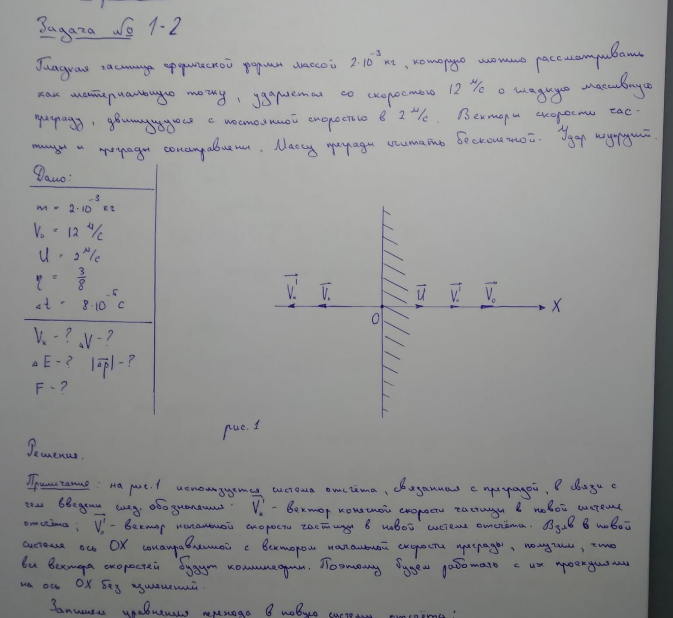 Задача № 1-2
Гладкая частица сферической формы массой 2·10⁻³ кг, которую можно рассматривать
как материальную точку, ударяется со скоростью 12 м/с о гладкую массивную
преграду, движущуюся с постоянной скоростью в 2 м/с. Векторы скорости час-
тицы и преграды сонаправлены. Массу преграды считать бесконечной. Удар неупругий.
Дано:
m = 2·10⁻³ кг
V₀ = 12 м/с
U = 2 м/с
η = 3/8
Δt = 8·10⁻⁵ с
Vₖ - ? ΔV - ?
ΔE - ? |Δp| - ?
F - ?
V'ₖ Vₖ O U V'₀ V₀ X
рис. 1
Решение.
Примечание: на рис. 1 используется система отсчёта, связанная с преградой, в связи с
чем введены след. обозначения: V'ₖ - вектор конечной скорости частицы в новой системе
отсчёта; V'₀ - вектор начальной скорости частицы в новой системе отсчёта. Взяв в новой
системе ось OX сонаправленной с вектором начальной скорости преграды, получим, что
все вектора скоростей будут коллинеарны. Поэтому будем работать с их проекциями
на ось OX без изменений.
Запишем уравнения перехода в новую систему отсчёта: